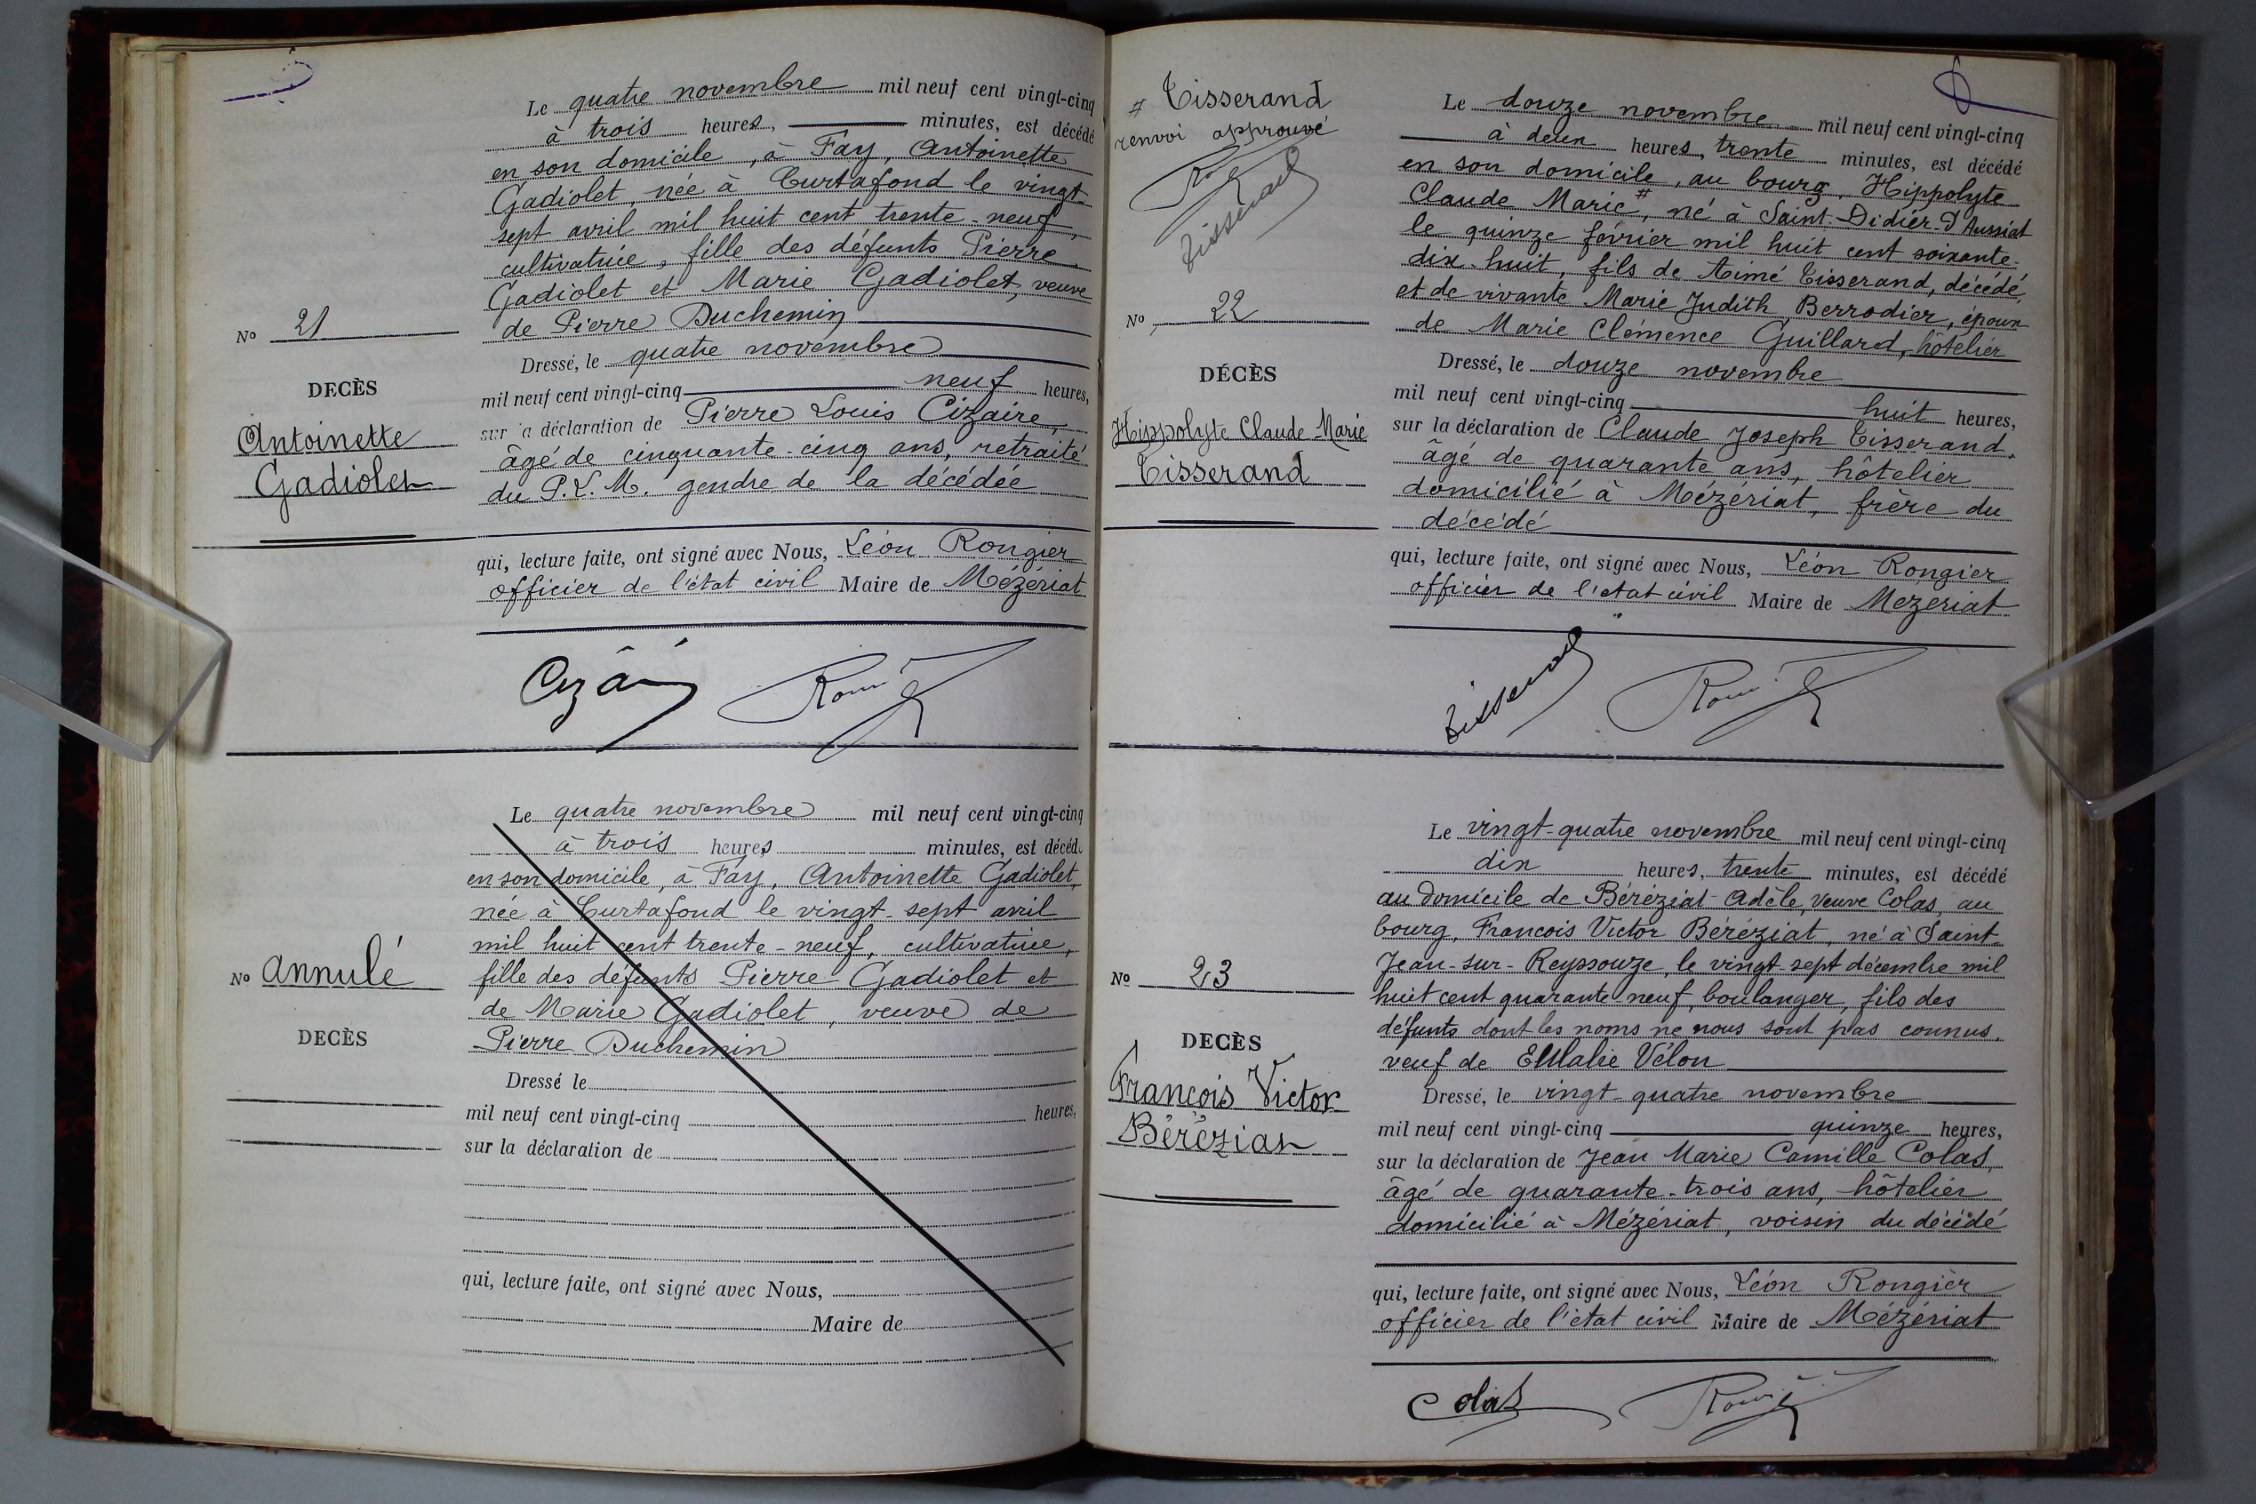 Le quatre novembre mil neuf cent vingt-cinq
à trois heures, minutes, est décédé
en son domicile, à Fay, Antoinette
Gadiolet, née à Curtafond le vingt-
sept avril mil huit cent trente-neuf,
cultivatrice, fille des défunts Pierre
Gadiolet et Marie Gadiolet, veuve
de Pierre Duchemin
No 21
Dressé, le quatre novembre
DECÈS
mil neuf cent vingt-cinq neuf heures,
Antoinette
Gadiolet
sur la déclaration de Pierre Louis Cizaire,
âgé de cinquante-cinq ans, retraité
du P.L.M. gendre de la décédée
qui, lecture faite, ont signé avec Nous, Léon Rongier
officier de l'état civil Maire de Mézériat
Le quatre novembre mil neuf cent vingt-cinq
à trois heures minutes, est décéd
en son domicile, à Fay, Antoinette Gadiolet,
née à Curtafond le vingt-sept avril
mil huit cent trente-neuf, cultivatrice,
No annulé
fille des défunts Pierre Gadiolet et
de Marie Gadiolet, veuve de
DECÈS
Pierre Duchemin
Dressé le
mil neuf cent vingt-cinq heures,
sur la déclaration de
qui, lecture faite, ont signé avec Nous,
Maire de
# Tisserand
renvoi approuvé
Tisserand
Le douze novembre mil neuf cent vingt-cinq
à deux heures, trente minutes, est décédé
en son domicile, au bourg, Hippolyte
Claude Marie #, né à Saint-Didier-d'Aussiat
le quinze février mil huit cent soixante-
dix-huit, fils de Aimé Tisserand, décédé,
et de vivante Marie Judith Berrodier, époux
de Marie Clémence Guillard, hôtelier
No 22
Dressé, le douze novembre
DÉCÈS
mil neuf cent vingt-cinq huit heures,
Hippolyte Claude Marie
Tisserand
sur la déclaration de Claude Joseph Tisserand,
âgé de quarante ans, hôtelier
domicilié à Mézériat, frère du
décédé
qui, lecture faite, ont signé avec Nous, Léon Rongier
officier de l'état civil Maire de Mezeriat
Tisserand
Le vingt-quatre novembre mil neuf cent vingt-cinq
dix heures, trente minutes, est décédé
au domicile de Béréziat Adèle, veuve Colas, au
bourg, Francois Victor Béréziat, né à Saint-
Jean-sur-Reyssouze, le vingt-sept décembre mil
huit cent quarante neuf, boulanger, fils des
défunts dont les noms ne nous sont pas connus,
veuf de Eulalie Vélon
No 23
DECÈS
Dressé, le vingt-quatre novembre
François Victor
Béréziat
mil neuf cent vingt-cinq quinze heures,
sur la déclaration de Jean Marie Camille Colas,
âgé de quarante-trois ans, hôtelier
domicilié à Mézériat, voisin du décédé
qui, lecture faite, ont signé avec Nous, Léon Rongier
officier de l'état civil Maire de Mézériat
Colas